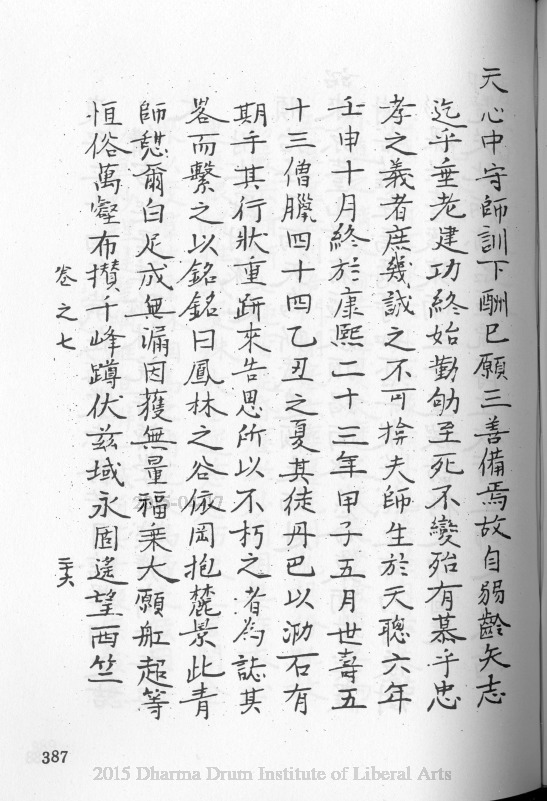 天心中守師訓下酬己願三善備焉故自弱齡矢志
迄乎垂老建功終始勤劬至死不變殆有慕乎忠
孝之義者庶幾誠之不可揜夫師生於天聰六年
壬申十月終於康熙二十三年甲子五月世壽五
十三僧臘四十四乙丑之夏其徒丹巴以泐石有
期手其行狀重趼來告思所以不朽之者為誌其
畧而繫之以銘銘曰鳳林之谷依岡抱麓景此青
師慭爾白足成無漏因獲無量福乘大願舡超等
恒俗萬壑布攢千峰蹲伏茲域永固遙望西竺
卷之七
三六
387
2015 Dharma Drum Institute of Liberal Arts